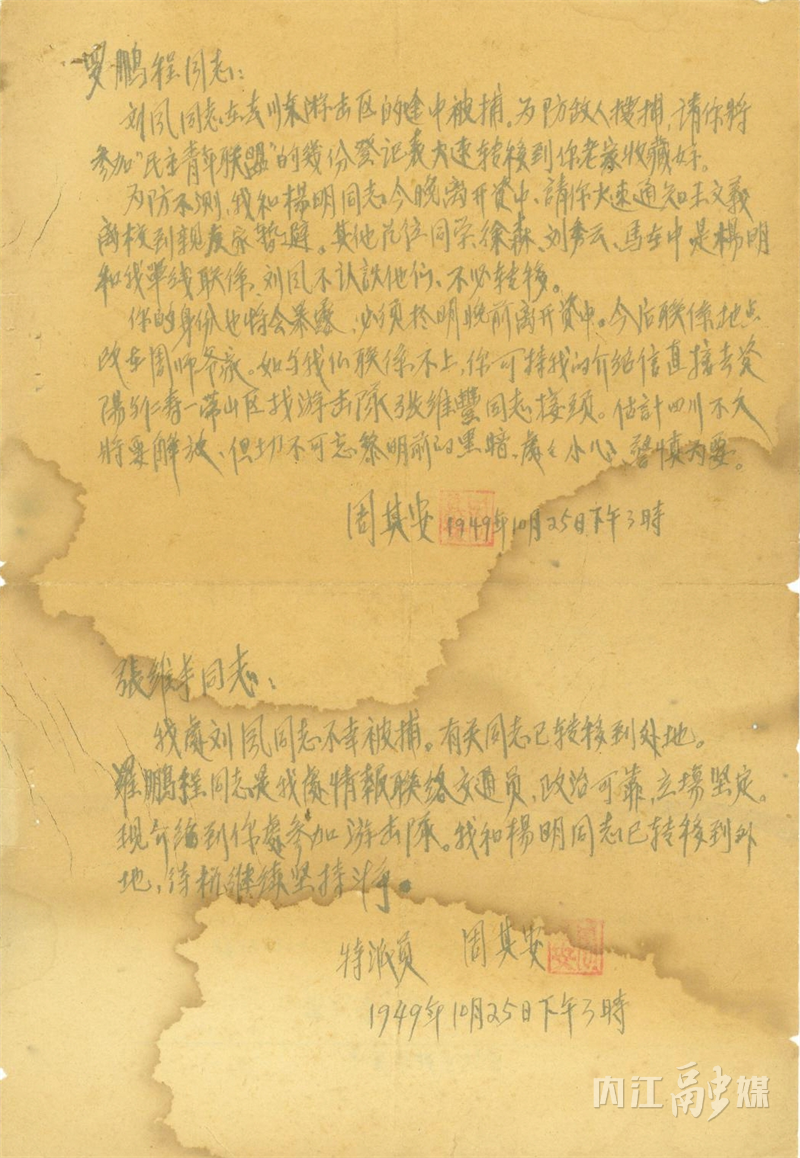 罗鹏程同志：
刘凤同志在去川东游击区的途中被捕。为防敌人搜捕，请你将
参加“民主青年联盟”的几份登记表火速转移到你老家收藏好。
为防不测，我和楊明同志今晚离开资中、請你火速通知王文義
离校到親友家暂避。其他几位同学徐森、刘秀云、馬在中是楊明
和我单线联係，刘凤不认识他们、不必转移。
你的身份也将会暴露、必须於明晚前离开资中。今后联係地点
改在周师爷家。如与我们联係不上，你可持我的介绍信直接去资
陽、仁寿一带山区找游击隊張维豐同志接頭。估計四川不久
將要解放、但切不可忘黎明前的黑暗、處處小心、謹慎为要。
周其安 1949年10月25日下午3時
張维丰同志：
我處刘凤同志不幸被捕。有关同志已转移到外地。
羅鹏程同志是我處情報联络交通员，政治可靠，立場坚定。
现介绍到你處参加游击隊。我和楊明同志已转移到外
地，待机继续坚持斗争。
特派员 周其安
1949年10月25日下午3時
内江融媒